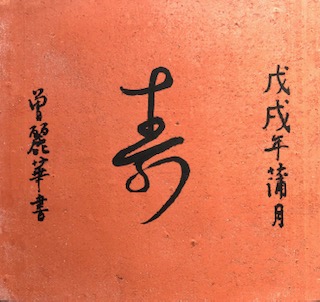 戊戌年蒲月
寿
曾麗華書